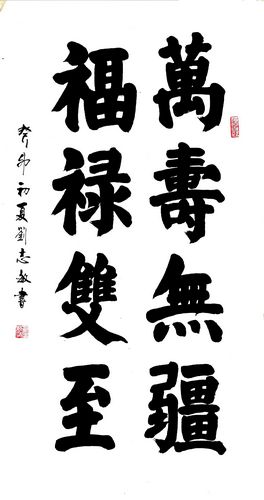 萬壽無疆
福禄雙至
癸卯初夏劉志敏書